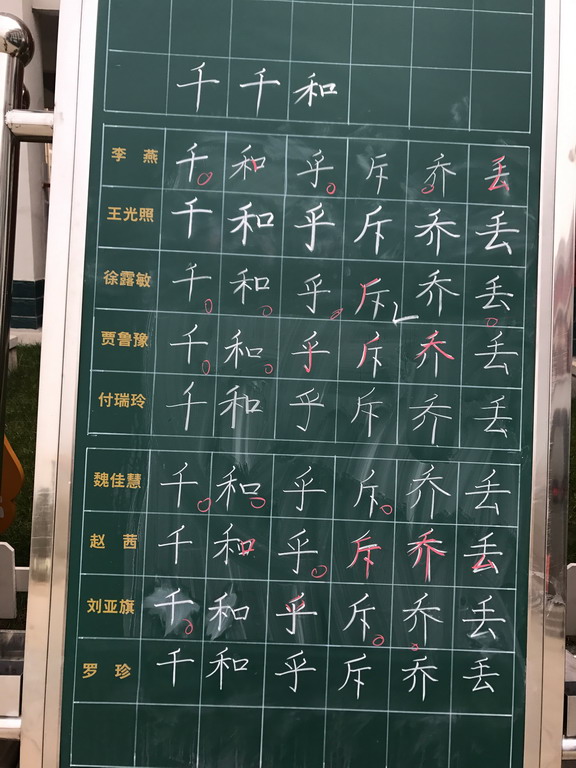 千 千 和
李 燕 千 和 乎 斥 乔 丢
王光照 千 和 乎 斥 乔 丢
徐露敏 千 和 乎 斥 乔 丢
贾鲁豫 千 和 乎 斥 乔 丢
付瑞玲 千 和 乎 斥 乔 丢
魏佳慧 千 和 乎 斥 乔 丢
赵 茜 千 和 乎 斥 乔 丢
刘亚旗 千 和 乎 斥 乔 丢
罗 珍 千 和 乎 斥 乔 丢